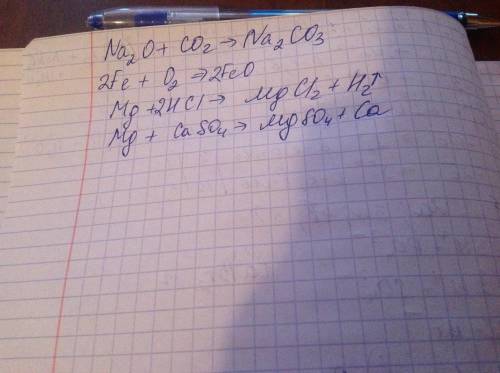 Na₂O + CO₂ → Na₂CO₃
2Fe + O₂ → 2FeO
Mg + 2HCl → MgCl₂ + H₂↑
Mg + CaSO₄ → MgSO₄ + Ca